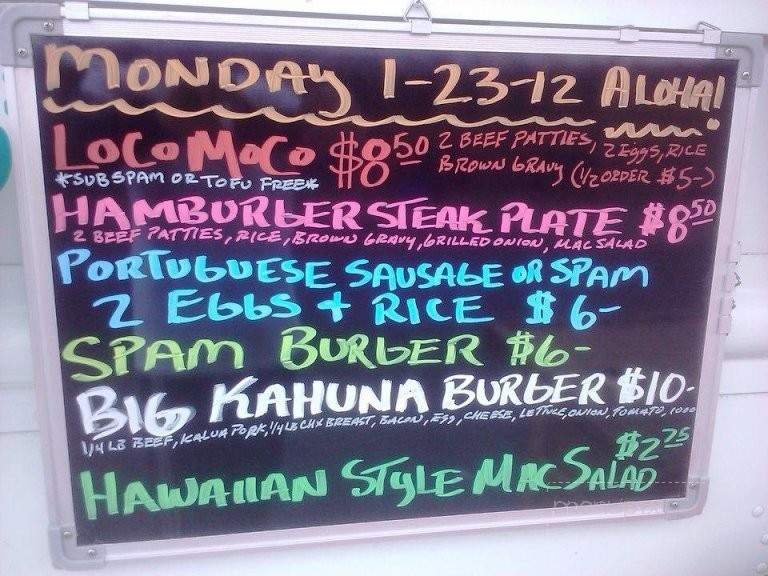 MONDAY 1-23-12 ALOHA!
LOCO MOCO $8.50 2 BEEF PATTIES, 2 EGGS, RICE
*SUB SPAM OR TOFU FREE* BROWN GRAVY (1/2 ORDER $5-)
HAMBURGER STEAK PLATE $8.50
2 BEEF PATTIES, RICE, BROWN GRAVY, GRILLED ONION, MAC SALAD
PORTUGUESE SAUSAGE OR SPAM
2 EGGS + RICE $6-
SPAM BURGER $6-
BIG KAHUNA BURGER $10-
1/4 LB BEEF, KALUA PORK, 1/4 LB CHX BREAST, BACON, EGG, CHEESE, LETTUCE, ONION, TOMATO,
HAWAIIAN STYLE MAC SALAD $2.75